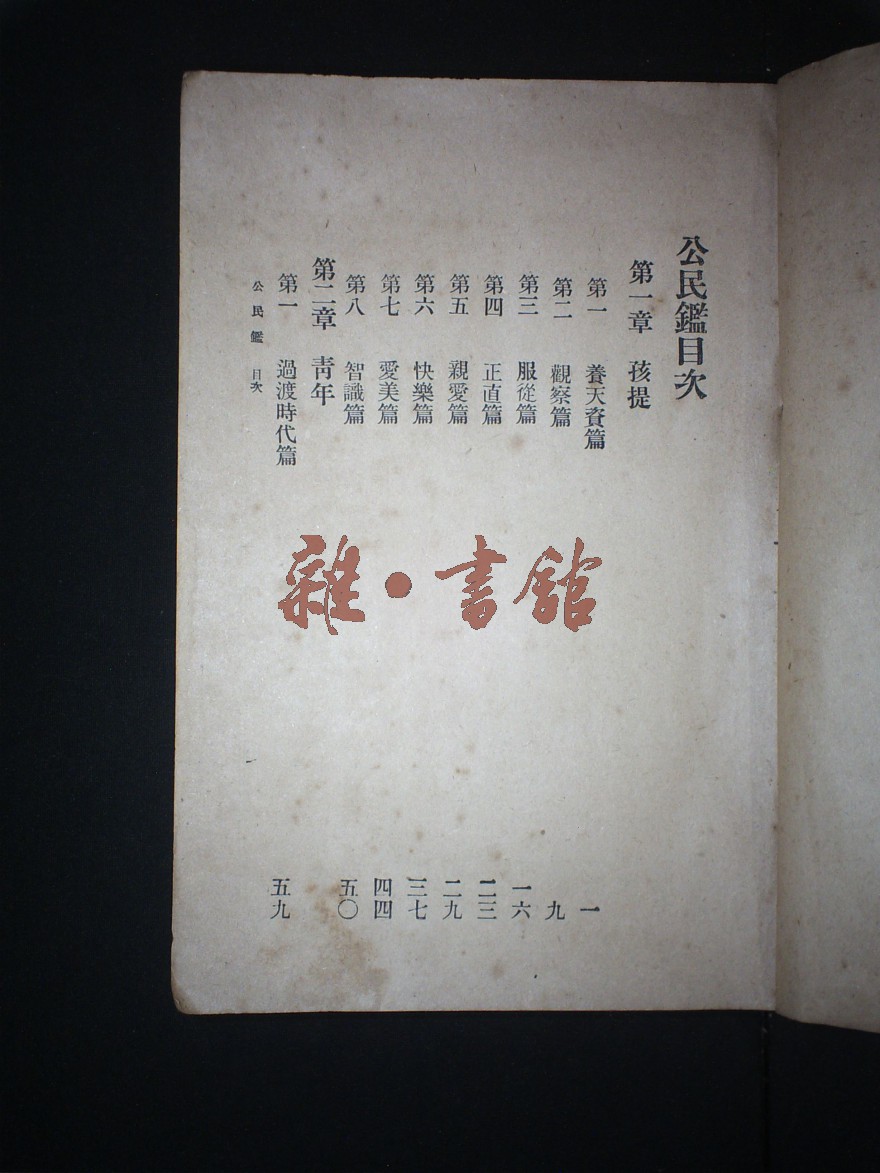 公民鑑目次
第一章 孩提
第一 養天資篇 一
第二 觀察篇 九
第三 服從篇 一六
第四 正直篇 二三
第五 親愛篇 二九
第六 快樂篇 三七
第七 愛美篇 四四
第八 智識篇 五〇
第二章 青年
第一 過渡時代篇 五九
公民鑑 目次
雜·書館